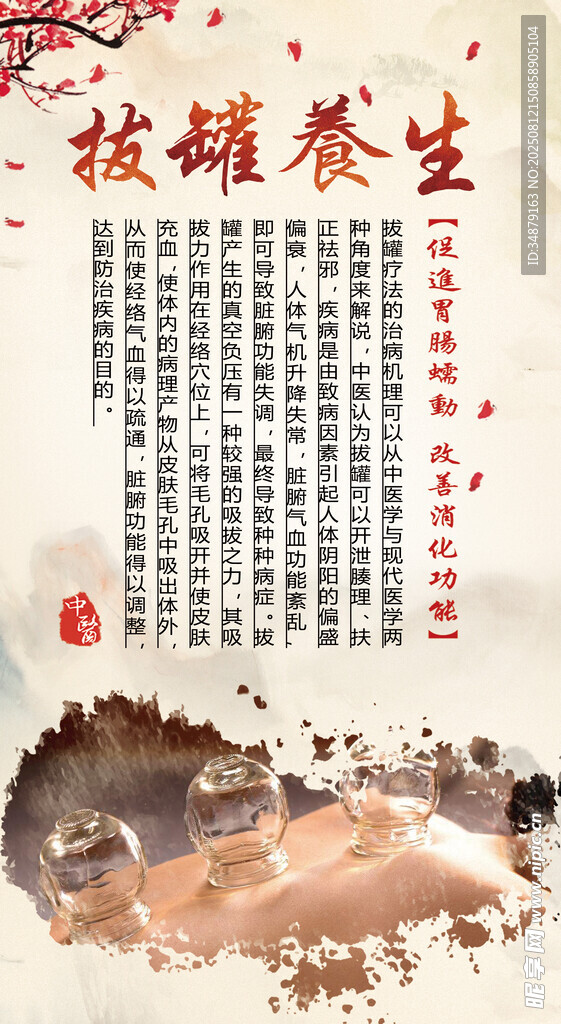 拔罐養生
【促進胃腸蠕動 改善消化功能】
拔罐疗法的治病机理可以从中医学与现代医学两
种角度来解说，中医认为拔罐可以开泄腠理、扶
正祛邪，疾病是由致病因素引起人体阴阳的偏盛
偏衰，人体气机升降失常，脏腑气血功能紊乱、
即可导致脏腑功能失调，最终导致种种病症。拔
罐产生的真空负压有一种较强的吸拔之力，其吸
拔力作用在经络穴位上，可将毛孔吸开并使皮肤
充血，使体内的病理产物从皮肤毛孔中吸出体外，
从而使经络气血得以疏通，脏腑功能得以调整，
达到防治疾病的目的。
中醫
ID:34879163 NO:20250812150858905104
昵享网 www.nipic.cn